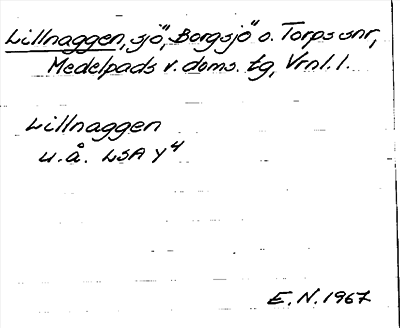 Lillnaggen, sjö, Borgsjö o. Torps snr,
Medelpads v. doms. tg, Vrnl. l.
Lillnaggen
u.å. LSA Y4
E.N. 1967